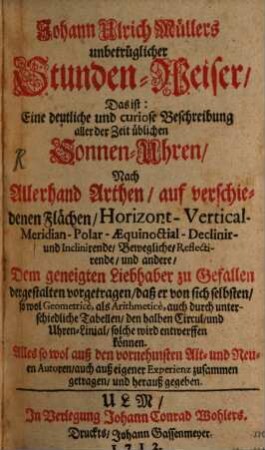 Johann Ulrich Müllers
unbetrüglicher
Stunden-Weiser/
Das ist:
Eine deutliche und curiose Beschreibung
aller der Zeit üblichen
Sonnen-Uhren/
Nach
Allerhand Arthen/ auf verschie-
denen Flächen/ Horizont-Vertical-
Meridian-Polar-Æquinoctial-Declinir-
und Inclinirende/ Bewegliche/ Reflecti-
rende/ und andere/
Dem geneigten Liebhaber zu Gefallen
dergestalten vorgetragen/ daß er von sich selbsten/
so wol Geometricè, als Arithmeticè, auch durch unter-
schiedliche Tabellen/ den halben Circul/ und
Uhren-Linial/ solche wird entwerffen
können.
Alles so wol auß den vornehmsten Alt- und Neu-
en Autoren/ auch auß eigener Experienz zusammen
getragen/ und herauß gegeben.
ULM/
In Verlegung Johann Conrad Wohlers.
Druckts/ Johann Gassenmeyer.
1712.